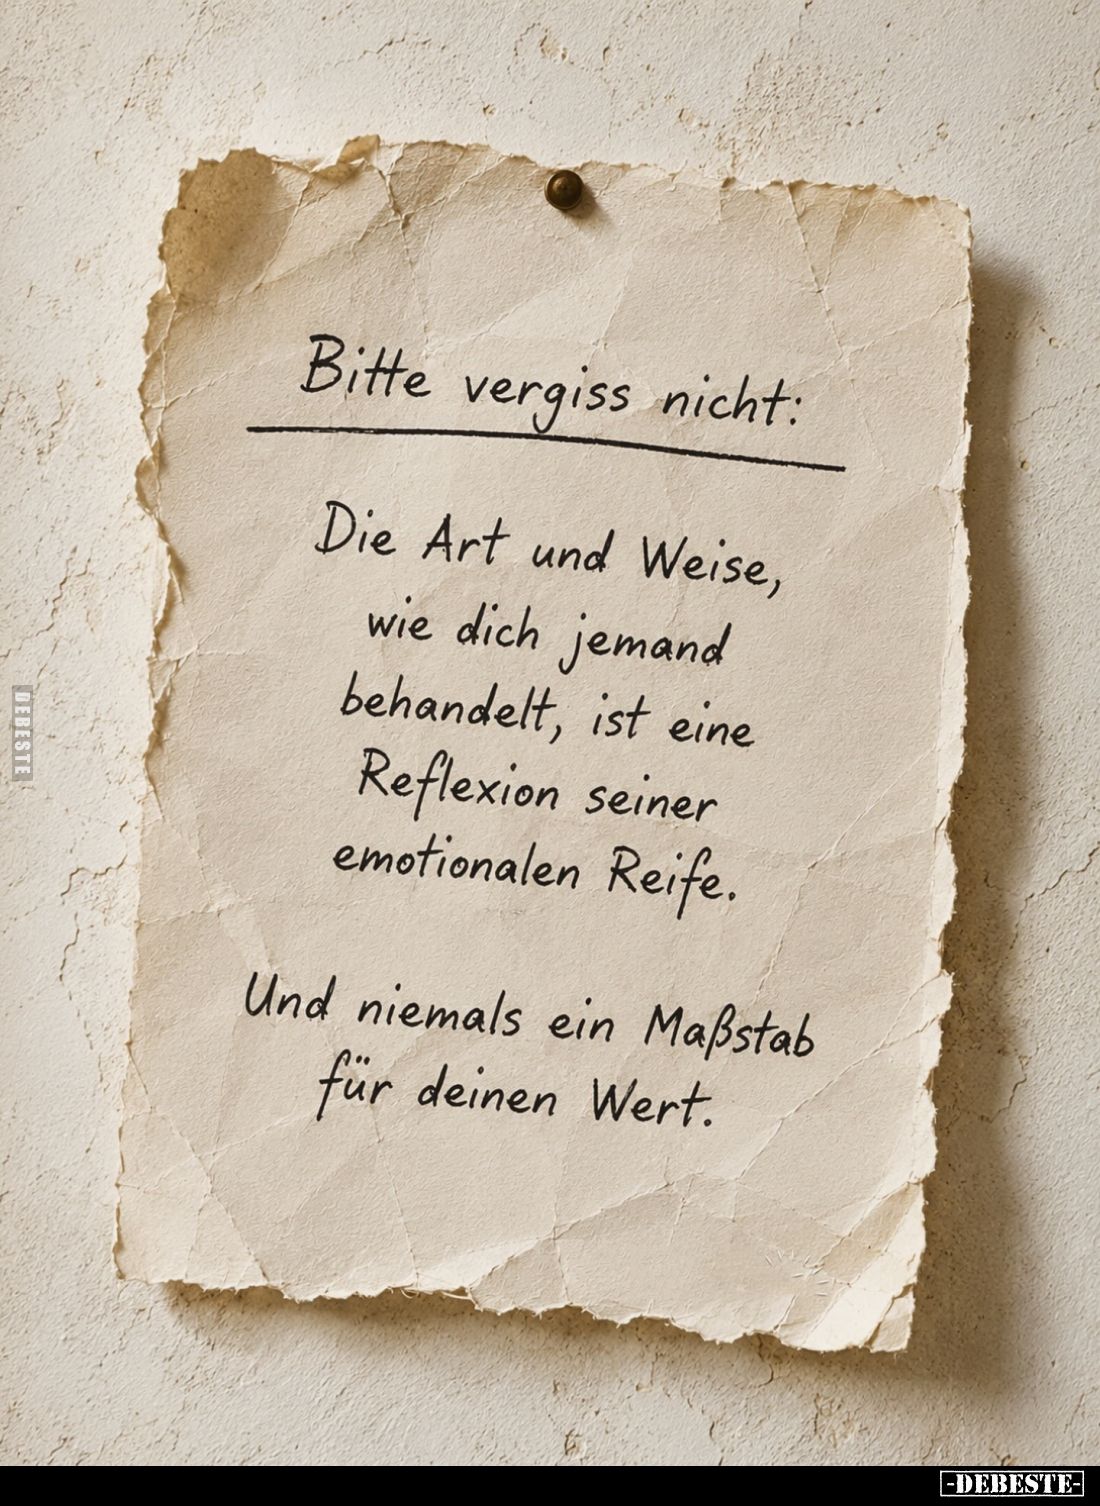 Bitte vergiss nicht:
Die Art und Weise,
wie dich jemand
behandelt, ist eine
Reflexion seiner
emotionalen Reife.
Und niemals ein Maßstab
für deinen Wert.
DEBESTE
-DEBESTE-